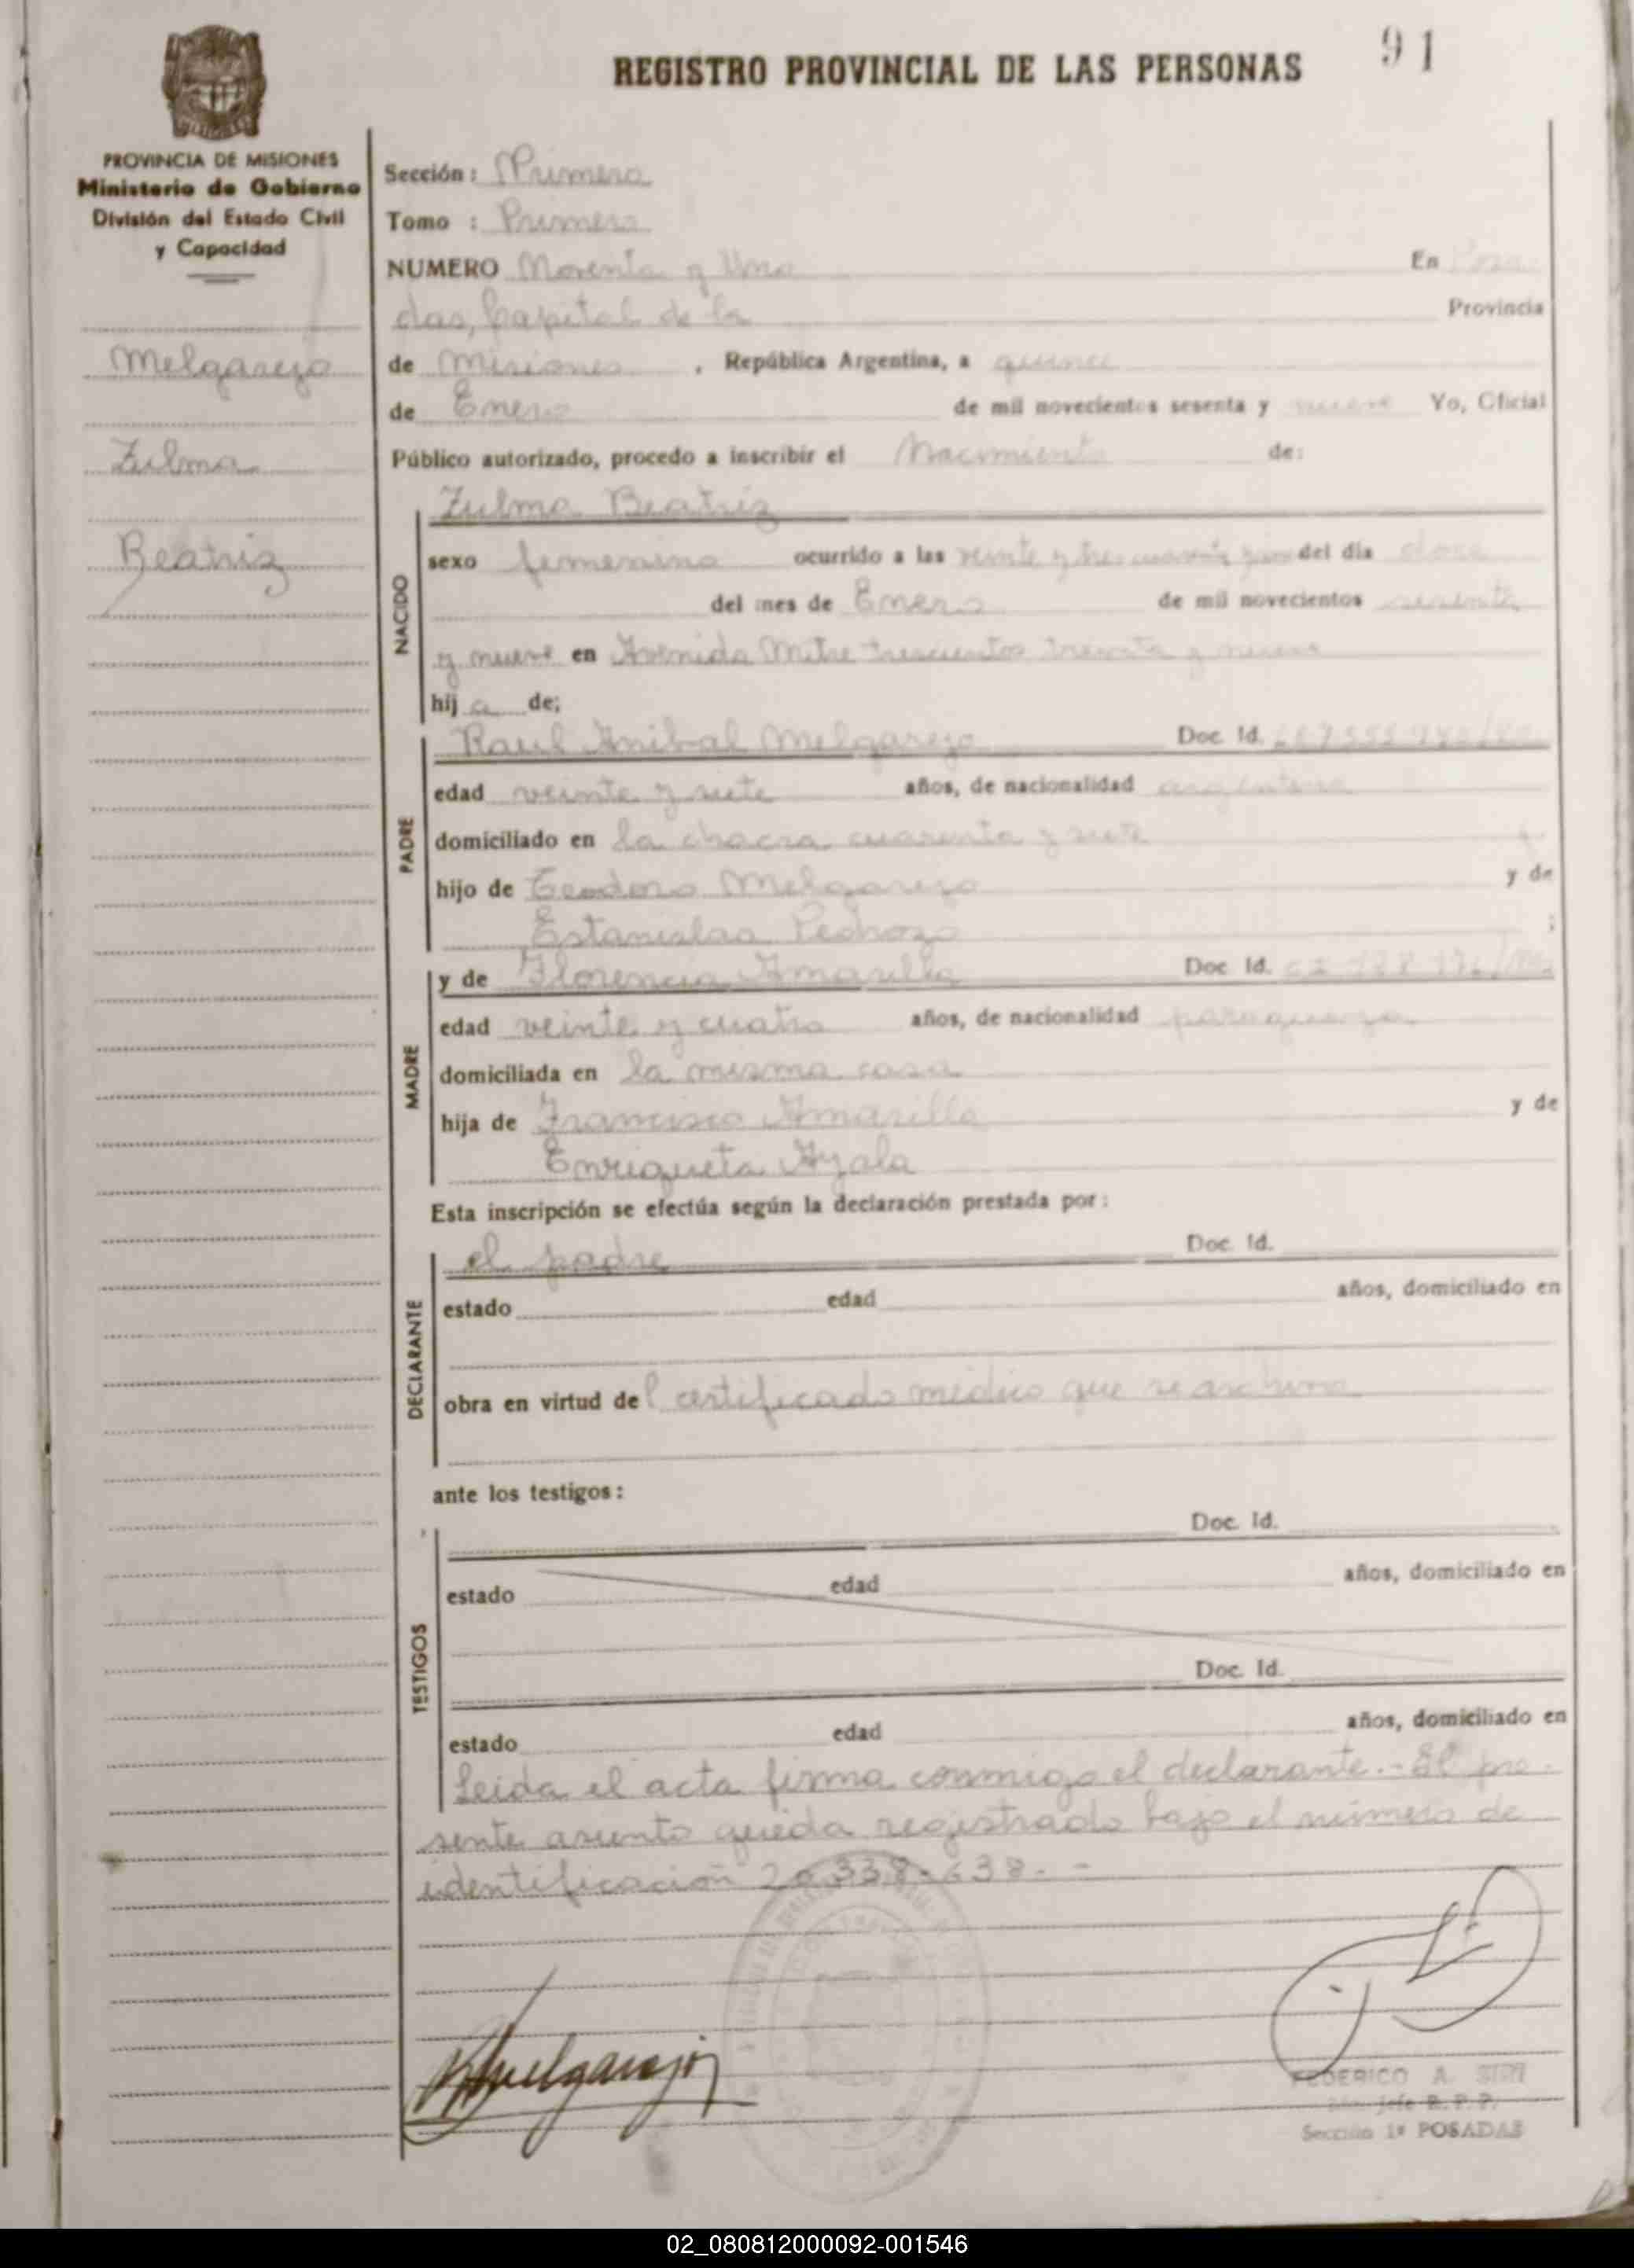 91
REGISTRO PROVINCIAL DE LAS PERSONAS
PROVINCIA DE MISIONES
Ministerio de Gobierno
División del Estado Civil
y Capacidad
Melgarejo
Zulma
Beatriz
Sección: Primera
Tomo : Primero
NUMERO Noventa y Uno En Posa
das, Capital de la Provincia
de Misiones, República Argentina, a quince
de Enero de mil novecientos sesenta y nueve Yo, Oficial
Público autorizado, procedo a inscribir el Nacimiento de:
Zulma Beatriz
NACIDO
sexo femenino ocurrido a las veinte y tres cuarenta del día doce
del mes de Enero de mil novecientos sesenta
y nueve en Avenida Mitre trescientos treinta y nueve
hij a de;
PADRE
Raul Anibal Melgarejo Doc. Id.
edad veinte y siete años, de nacionalidad argentina
domiciliado en la chacra cuarenta y siete
hijo de Teodoro Melgarejo y de
Estanislaa Pedrozo ;
MADRE
y de Florencia Amarilla Doc. Id.
edad veinte y cuatro años, de nacionalidad paraguaya
domiciliada en la misma casa
hija de Francisco Amarilla y de
Enriqueta Ayala
Esta inscripción se efectúa según la declaración prestada por:
DECLARANTE
el padre Doc. Id.
estado edad años, domiciliado en
obra en virtud del certificado médico que se archiva
ante los testigos:
TESTIGOS
Doc. Id.
estado edad años, domiciliado en
Doc. Id.
estado edad años, domiciliado en
Leida el acta firma conmigo el declarante.- El pre-
sente asunto queda registrado bajo el número de
identificación 20.338.638.-
Melgarejo
FEDERICO A.
Jefe R. P. P.
Sección 1ª POSADAS
02_080812000092-001546